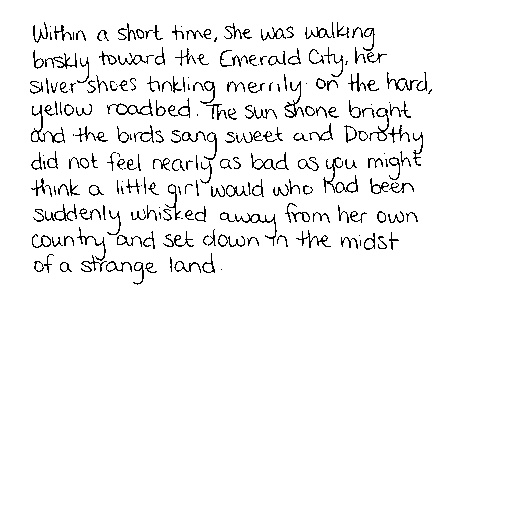 Within a short time, she was walking
briskly toward the Emerald City, her
silver shoes tinkling merrily on the hard,
yellow roadbed. The sun shone bright
and the birds sang sweet and Dorothy
did not feel nearly as bad as you might
think a little girl would who had been
suddenly whisked away from her own
country and set down in the midst
of a strange land.